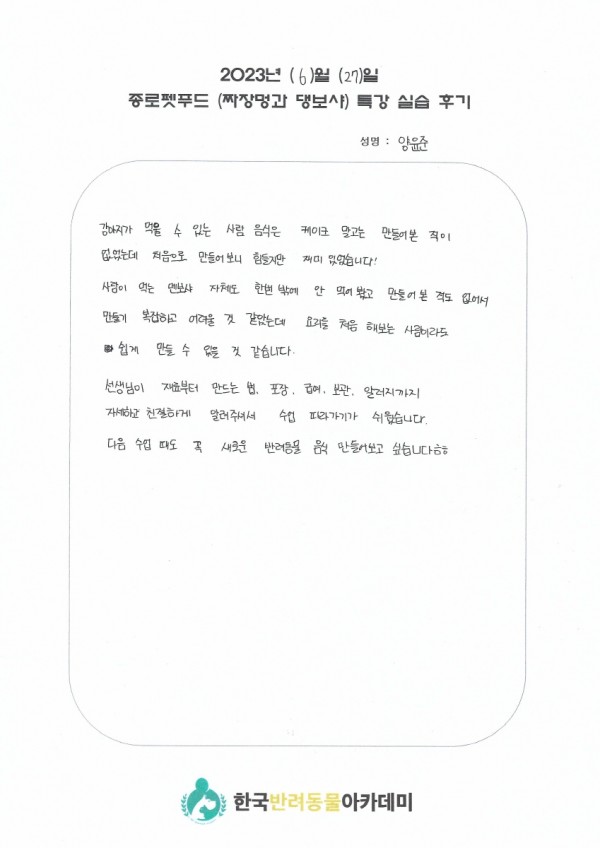 2023년 (6)월 (27)일
종로펫푸드 (짜장멍과 댕보샤) 특강 실습 후기
성명 : 양윤준
강아지가 먹을 수 있는 사람 음식은 케이크 말고는 만들어본 적이
없었는데 처음으로 만들어보니 힘들지만 재미 있었습니다!
사람이 먹는 멘보샤 자체도 한번 밖에 안 먹어 봤고 만들어 본 적도 없어서
만들기 복잡하고 어려울 것 같았는데 요리를 처음 해보는 사람이라도
쉽게 만들 수 있을 것 같습니다.
선생님이 재료부터 만드는 법, 포장, 급여, 보관, 알러지까지
자세하고 친절하게 알려주셔서 수업 따라가기가 쉬웠습니다.
다음 수업 때도 꼭 새로운 반려동물 음식 만들어보고 싶습니다ㅎㅎ
한국반려동물아카데미